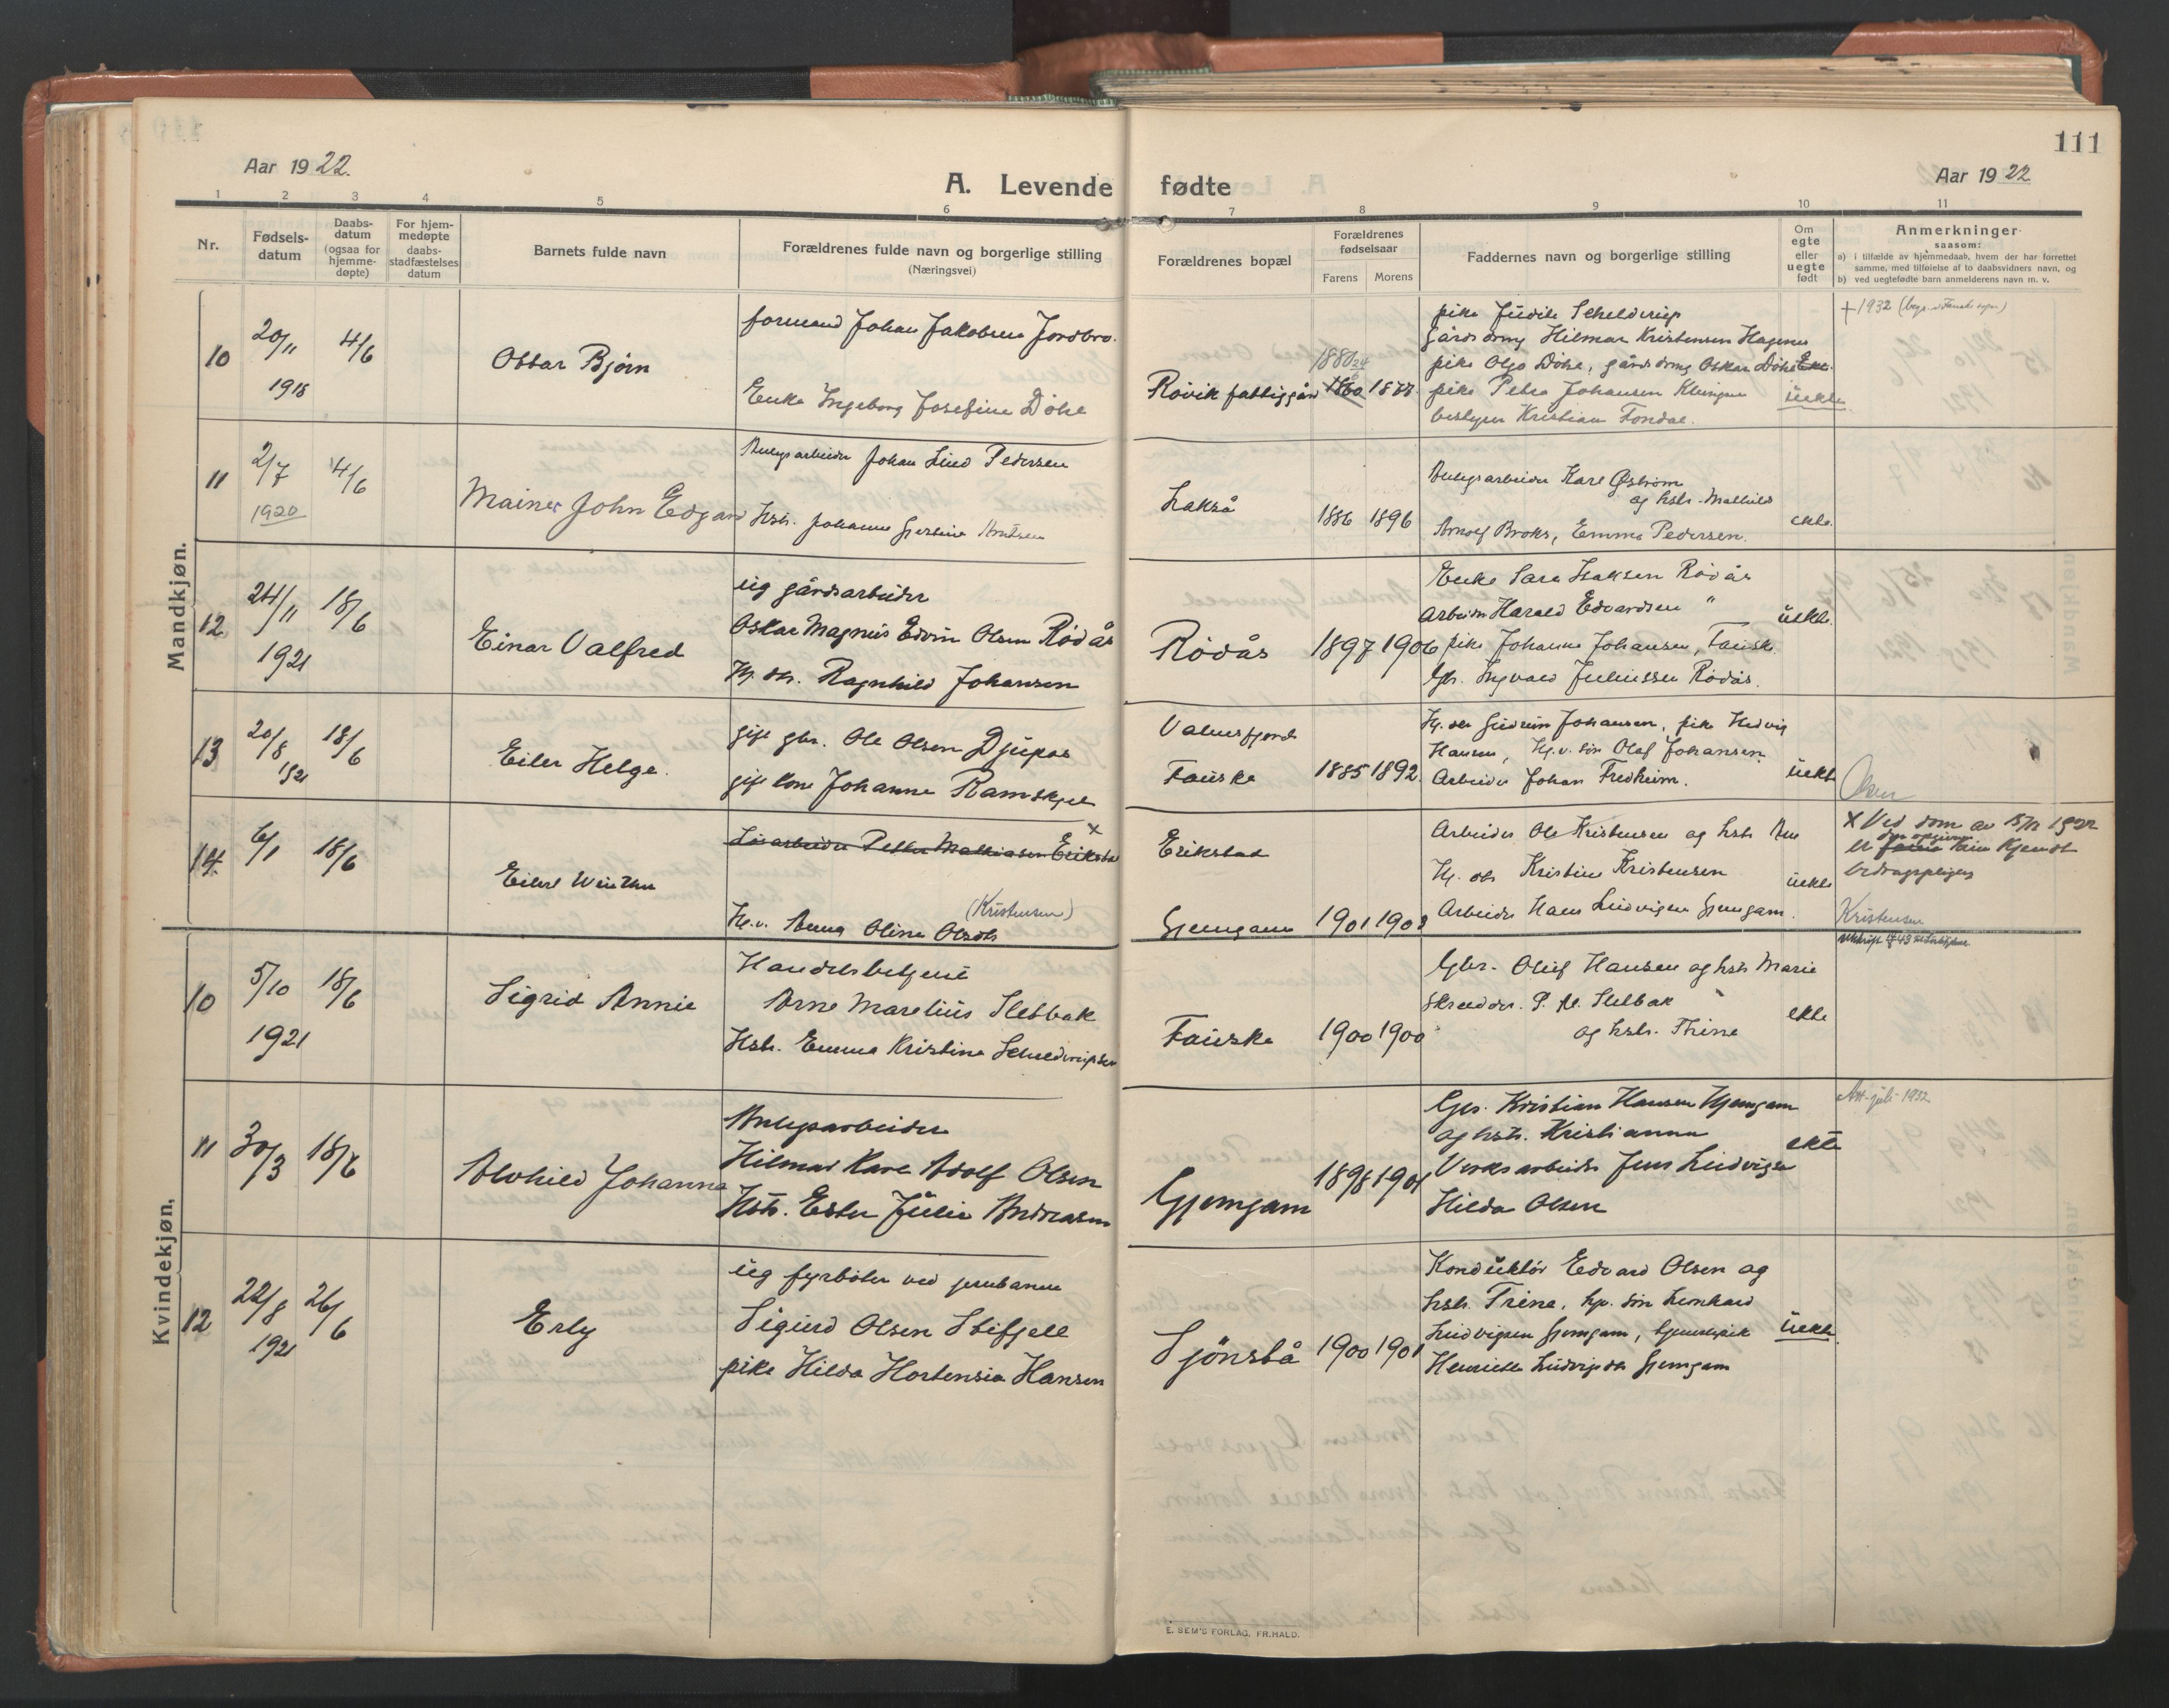 111
Aar 1922.
A. Levende fødte
Aar 1922
1 2 3 4 5 6 7 8 9 10 11
Nr.
Fødsels-
datum
Daabs-
datum
(ogsaa for
hjemme-
døpte)
For hjem-
medøpte
daabs-
stadfæstelses
datum
Barnets fulde navn
Forældrenes fulde navn og borgerlige stilling
(Næringsvei)
Forældrenes bopæl
Forældrenes
fødselsaar
Farens Morens
Faddernes navn og borgerlige stilling
Om
egte
eller
uegte
født
Anmerkninger
saasom:
a) i tilfælde av hjemmedaab, hvem der har forrettet
samme, med tilføielse af to daabsvidners navn, og
b) ved uegtefødte barn anmelderens navn m. v.
Mandkjøn.
10
20/11
1918
4/6
Ottar Bjørn
formand Johan Jakobsen Jordbro.
Enke Ingeborg Josefine Döhe
Rövik fattiggård
1860 1877.
pike Judith Schelderup
gårdsdrng Hilmar Kristensen Hagenes
pike Olga Döhe, gårdsdrng Oskar Döhe
pike Petra Johansen Klungset
bestyrer Kristian Fondal.
uekte
+ 1932
11
2/7
1920
4/6
Mainer John Edgard
Anlegsarbeider Johan Lind Pedersen
Hstr. Johanne Gjertine Arntsen
Lakså
1886 1896
Anlegsarbeider Karl Østrøm
og hstr. Mathild
Arnolf Broks, Emma Pedersen.
ekte.
12
24/11
1921
18/6
Einar Valfred
ug gårdsarbeider
Oskar Magnus Edvin Olsen Rödås
Hj. dtr. Ragnhild Johansen
Rödås
1897 1906
Enke Sara Isaksen Rödås
Arbeider Harald Edvardsen "
pike Johanne Johansen, Fausk.
Gbr. Ingvald Juliussen Rödås.
uekte.
13
20/8
1921
18/6
Eiler Helge.
gift gbr. Ole Olsen Djupos
gift kone Johanne Ramskjel
Valnesfjord
Fauske
1885 1892.
Hj. dtr Gudrun Johansen, pike Hedvig
Hansen, Hj.v. sön Olaf Johansen.
Arbeider Johan Fredheim.
uekte
Olsen
14.
6/1
18/6
Eilert Winther
Lösarbeider Petter Mathiasen Erikstad
x
(Kristensen)
Hj.v. Anna Oline Olsdtr
Erikstad
Gjemgam
1901 1903
Arbeider Ole Kristensen og hstr Ane
Hj. dtr Kristine Kristensen
Arbeider Hans Ludvigsen Gjemgam.
uekte
X Ved dom av 15/12 1922
den opgivne
er faren kun kjendt
bidragspligtig
Kristensen
Kvindekjøn.
10
5/10
1921
18/6
Sigrid Annie
Handelsbetjent
Arne Marelius Sletbak
Hstr. Emma Kristine Schelderupsen
Fauske
1900 1900
Gbr. Oluf Hansen og hstr Marie
Skredder. P. M. Sletbak
og hstr. Trine
ekte
11
30/3
18/6
Alvhild Johanna
Anlegsarbeider
Hilmar Karl Adolf Olsen
Hstr. Ester Julie Andreasen
Gjemgam
1898 1901
Gbr. Kristian Hansen Gjemgam
og hstr. Kristianna
Verksarbeider Jens Ludvigsen
Hilda Olsen
ekte
Att. juli 1932
12
22/8
1921
26/6
Erly
ug fyrböter ved jernbanen
Sigurd Olsen Stifjell
pike Hilda Hortensia Hansen
Sjönstå
1900 1901
Konduktör Edvard Olsen og
hstr. Trine, hj. sön Leonhard
Ludvigsen Gjemgam, tjenestepike
Henriette Ludvigsdtr Gjemgam
uekte.
E. SEM'S FORLAG, FR.HALD.